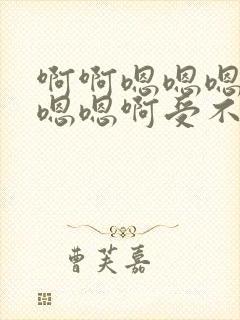 啊啊嗯嗯嗯
嗯嗯啊受不
曹芙嘉